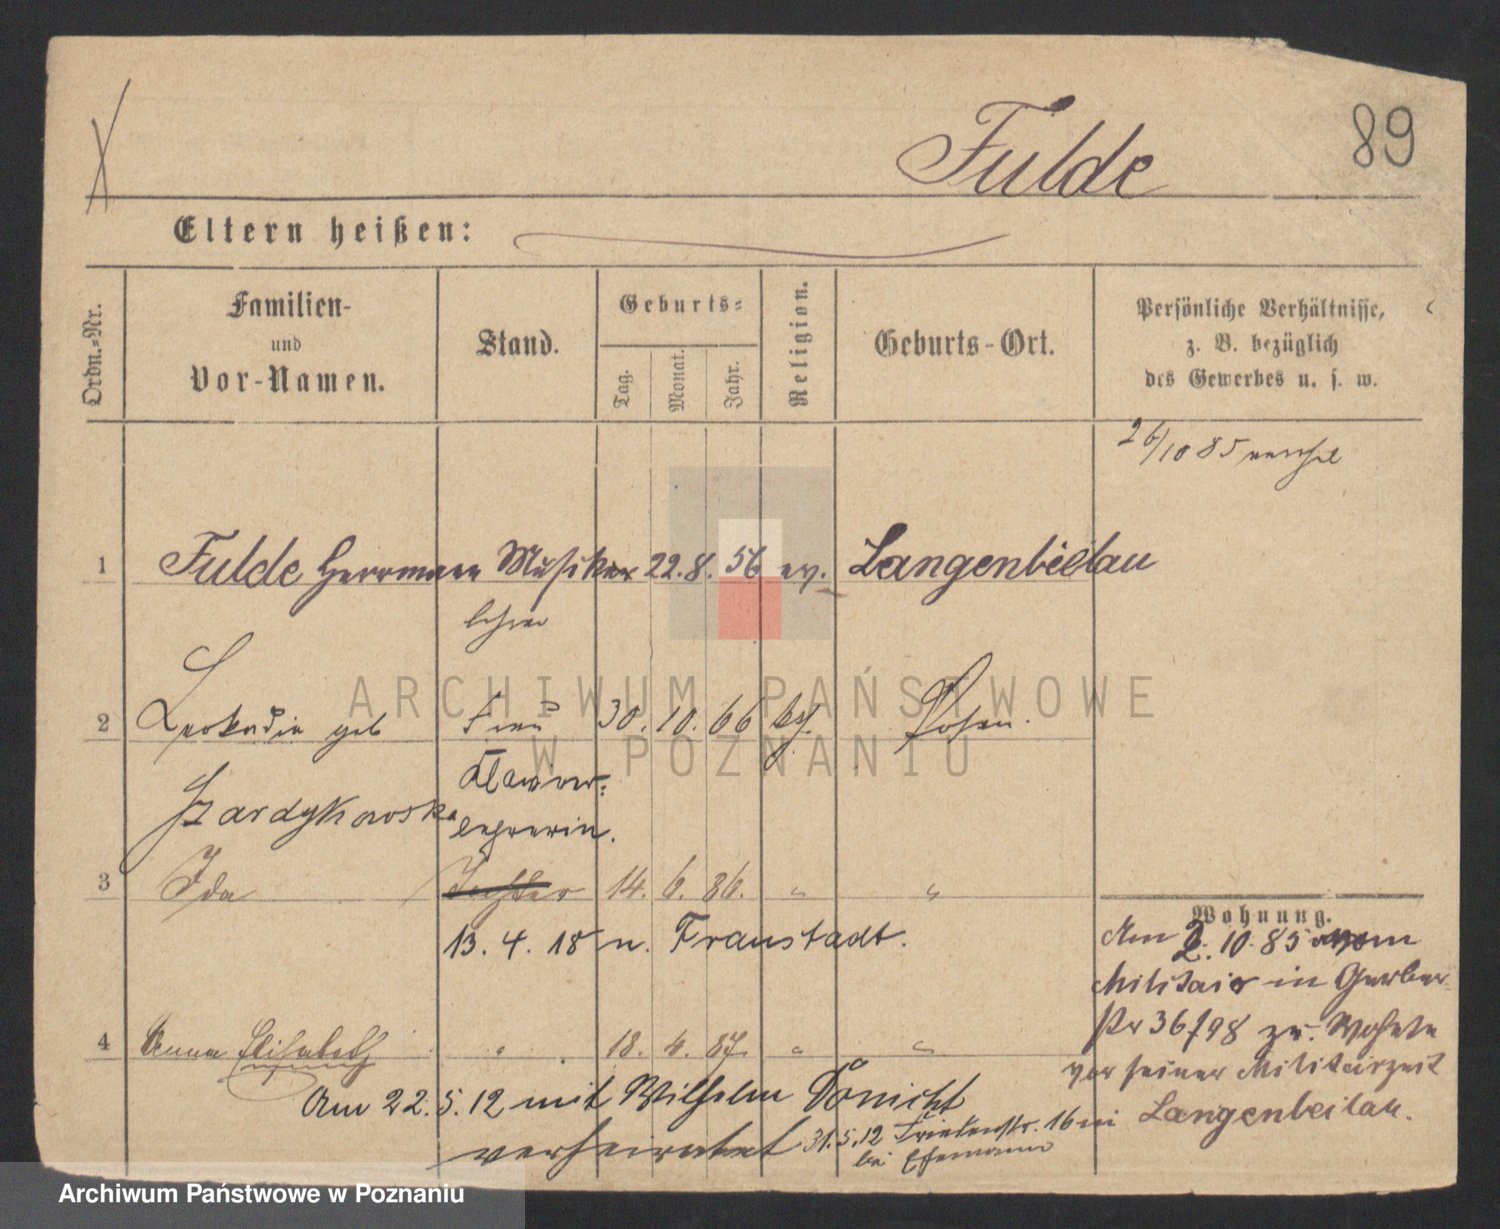 Fulde
89
Eltern heißen:
Ordn.-Nr.
Familien-
und
Vor-Namen.
Stand.
Geburts-
Tag.
Monat.
Jahr.
Religion.
Geburts-Ort.
Persönliche Verhältnisse,
z. B. bezüglich
des Gewerbes u. s. w.
26/10 85
1 Fulde Herrmann Musiker 22. 8. 56 ev. Langenbielau
lehrer
2 Leokadia geb Frau 30. 10. 66 Posen.
Klavier-
Szardykowska lehrerin.
3 Ida Tochter 14. 6. 86. " "
13. 4. 18 n. Fraustadt.
Wohnung.
Am 2. 10. 85 vom
Militair in Gerber
str 36/98 zu. Wohnte
vor seiner Militärzeit
Langenbeilau.
4 Anna Elisabeth " 18. 4. 87. " "
Am 22. 5. 12 mit Wilhelm Tönicht
verheiratet 31. 5. 12 16
bei Ehemann
ARCHIWUM PAŃSTWOWE
W POZNANIU
Archiwum Państwowe w Poznaniu